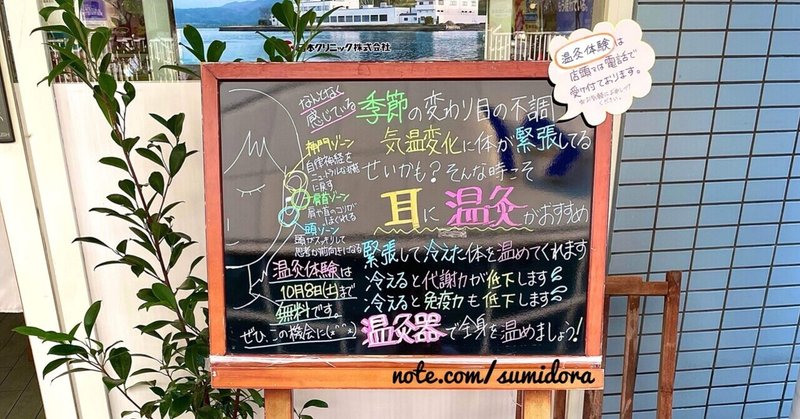 日本クリニック株式会社
温灸体験は
店頭又は電話で
受け付けております。
なんとなく
感じている
季節の変わり目の不調
気温変化に体が緊張してる
せいかも?そんな時こそ
耳に温灸がおすすめ
神門ゾーン
自律神経を
ニュートラルな状態
に戻す
肩首ゾーン
肩や首のコリが
ほぐれる
頭ゾーン
頭がスッキリして
思考が前向きになる
緊張して冷えた体を温めてくれます
冷えると代謝力が低下します
冷えると免疫力も低下します
温灸体験は
10月8日(土)まで
無料です。
ぜひ、この機会に(*^^*)
温灸器で全身を温めましょう!
note.com/sumidora